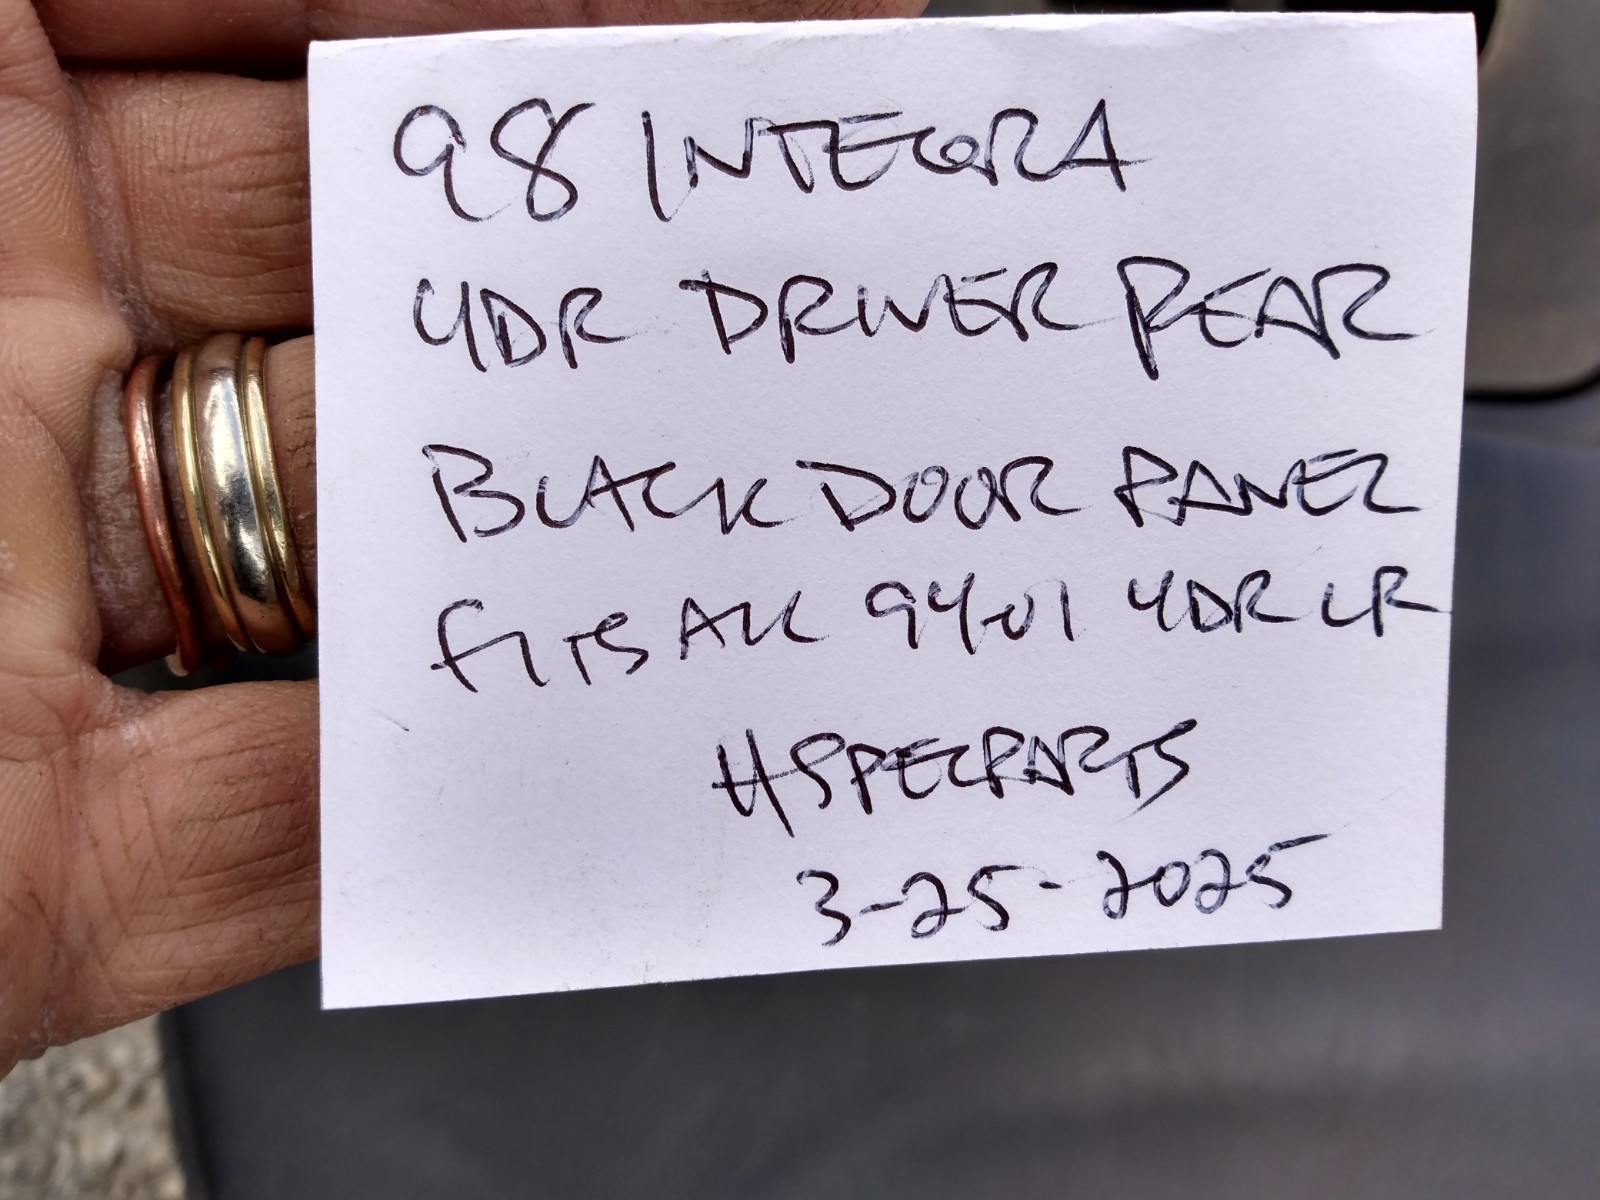 98 INTEGRA
4DR DRIVER REAR
BLACK DOOR PANEL
FITS ALL 94-01 4DR LR
HSPECPARTS
3-25-2025